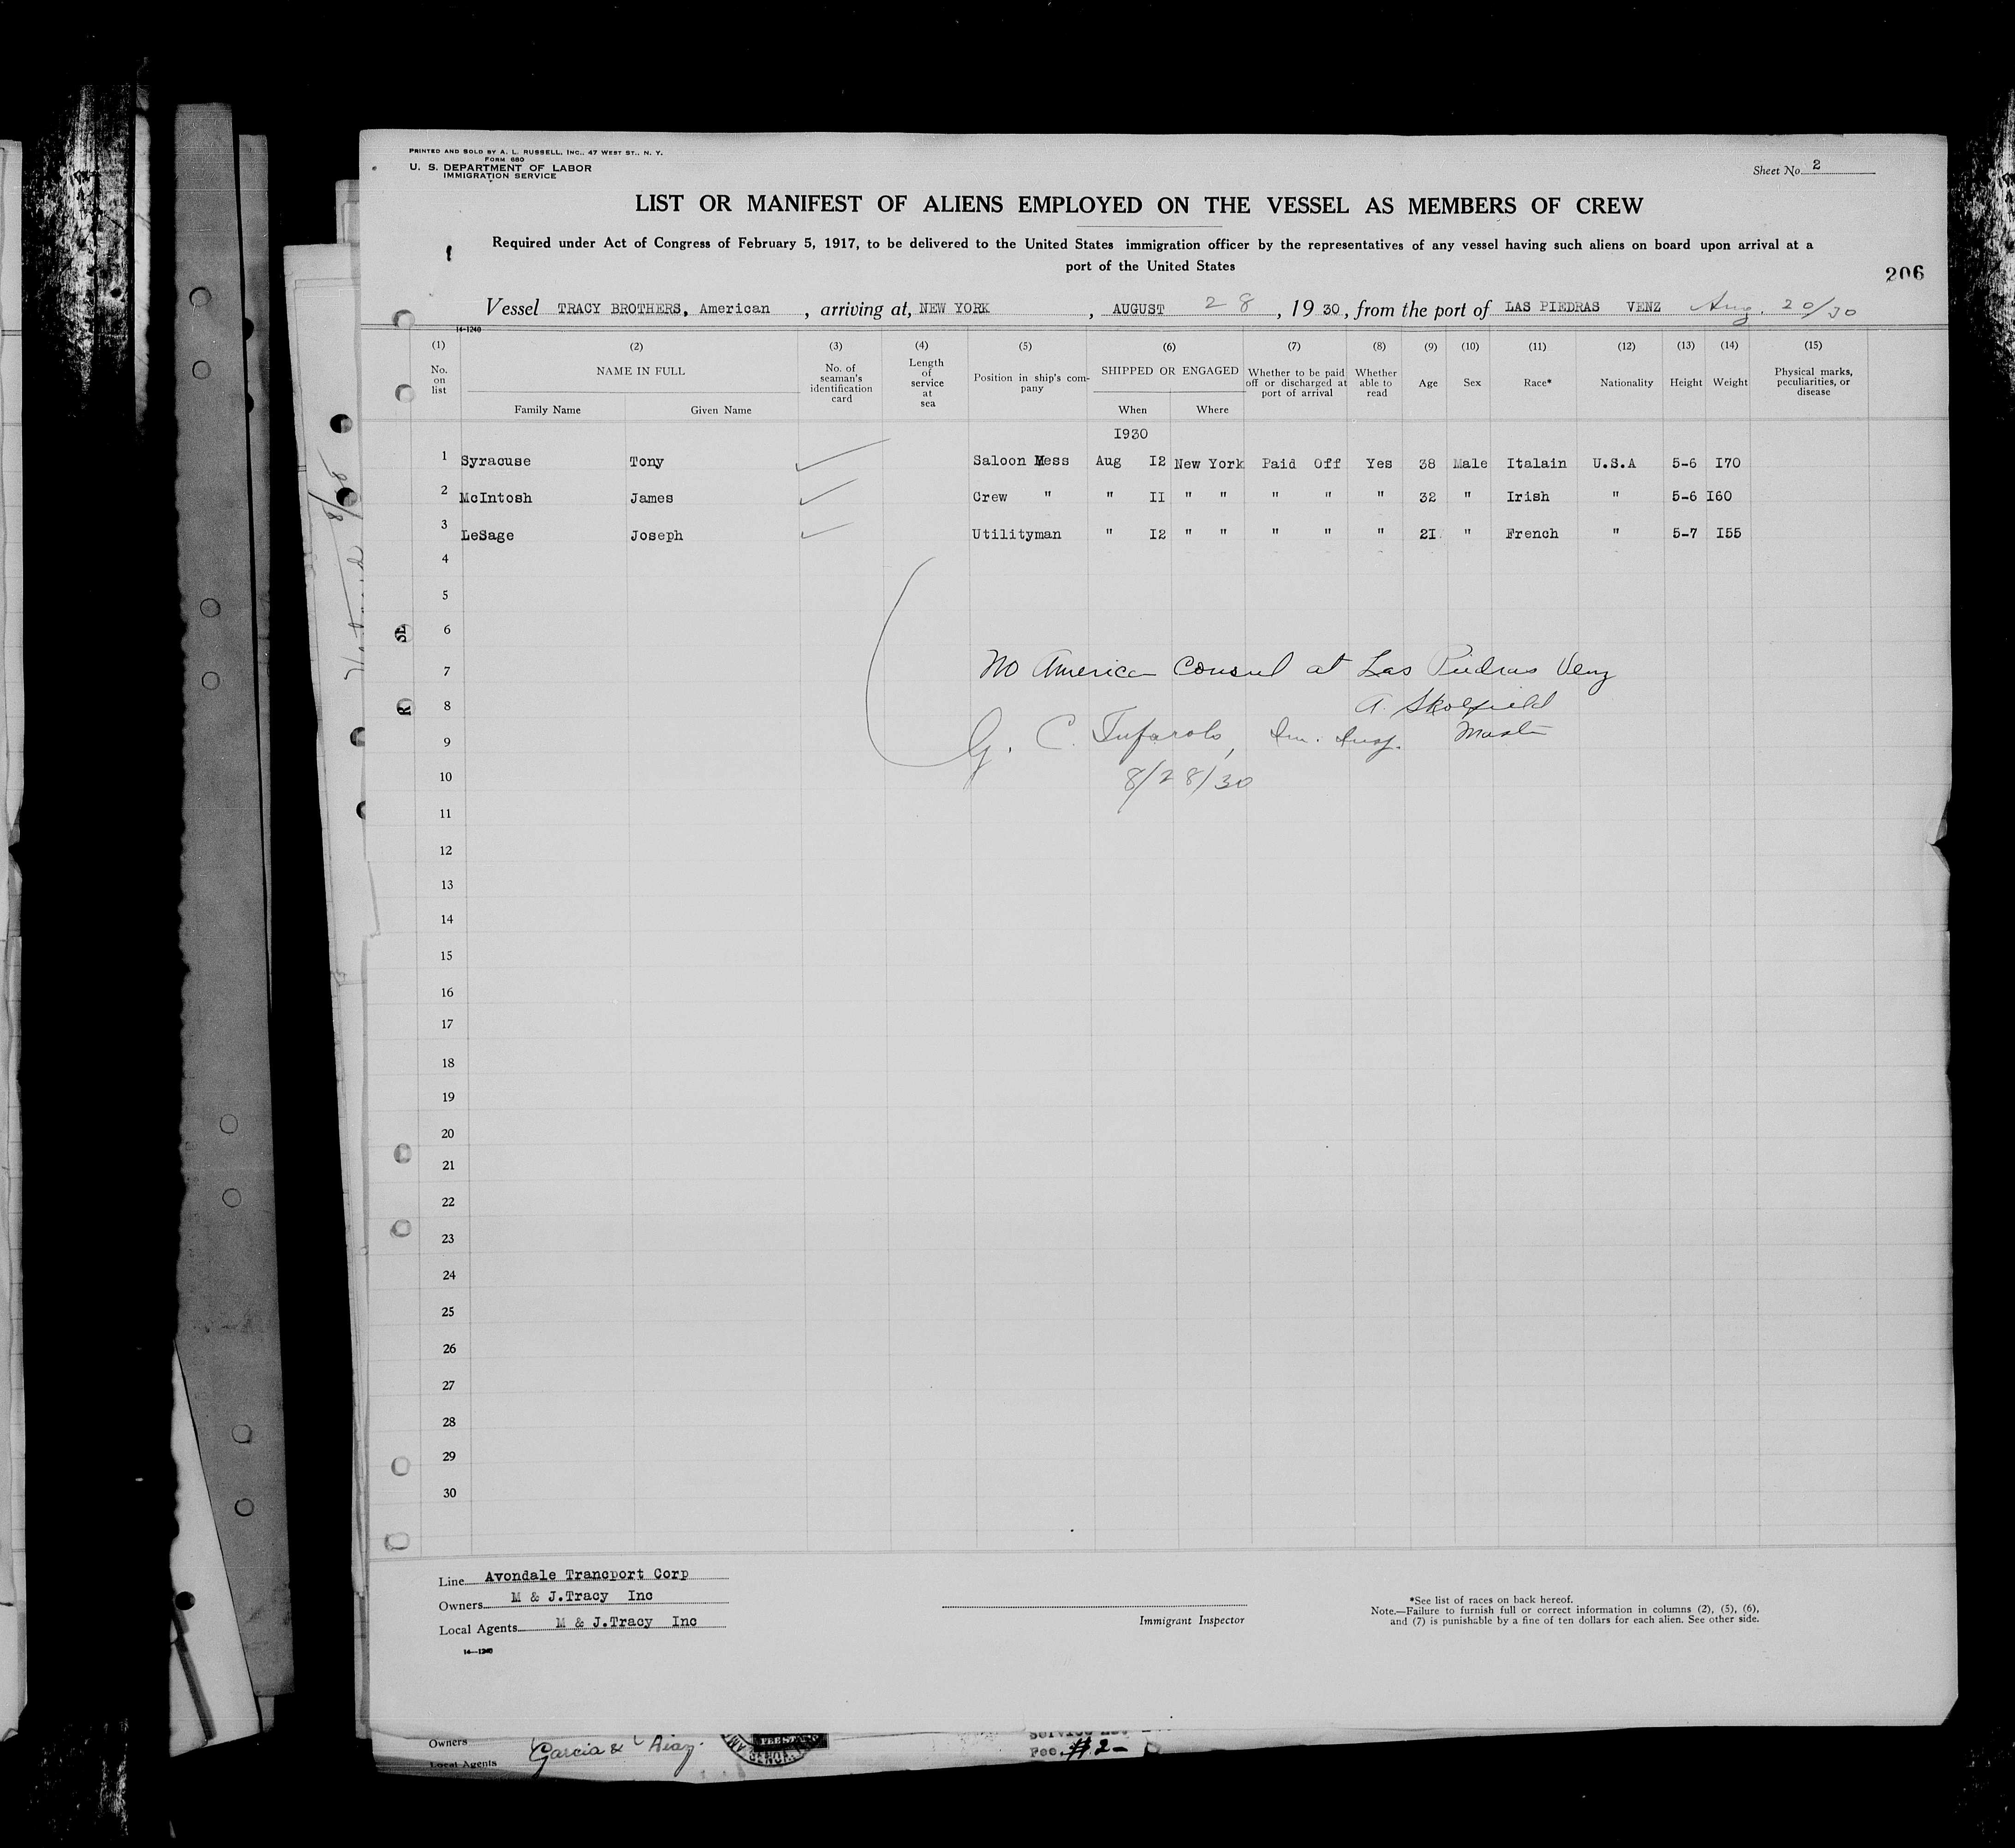 PRINTED AND SOLD BY A. L. RUSSELL, INC., 47 WEST ST., N. Y.
FORM 680
U. S. DEPARTMENT OF LABOR
IMMIGRATION SERVICE
Sheet No. 2
LIST OR MANIFEST OF ALIENS EMPLOYED ON THE VESSEL AS MEMBERS OF CREW
Required under Act of Congress of February 5, 1917, to be delivered to the United States immigration officer by the representatives of any vessel having such aliens on board upon arrival at a
port of the United States
206
Vessel TRACY BROTHERS, American, arriving at, NEW YORK, AUGUST 28, 1930, from the port of LAS PIEDRAS VENZ Aug. 20/30
14-1240
(1) (2) (3) (4) (5) (6) (7) (8) (9) (10) (11) (12) (13) (14) (15)
No. on list NAME IN FULL Family Name Given Name No. of seaman's identification card Length of service at sea Position in ship's company SHIPPED OR ENGAGED When Where Whether to be paid off or discharged at port of arrival Whether able to read Age Sex Race* Nationality Height Weight Physical marks, peculiarities, or disease
1930
1 Syracuse Tony Saloon Mess Aug I2 New York Paid Off Yes 38 Male Italain U.S.A 5-6 I70
2 McIntosh James Crew " " II " " " " " 32 " Irish " 5-6 I60
3 LeSage Joseph Utilityman " I2 " " " " " 2I " French " 5-7 I55
4
5
6
7 No American Consul at Las Piedras Venz
8 A. Skolfield
9 G. C. Tufarolo, Im. Insp. Master
10 8/28/30
11
12
13
14
15
16
17
18
19
20
21
22
23
24
25
26
27
28
29
30
Line Avondale Trancport Corp
Owners M & J.Tracy Inc
Local Agents M & J.Tracy Inc
14-1240
Immigrant Inspector
*See list of races on back hereof.
Note.—Failure to furnish full or correct information in columns (2), (5), (6),
and (7) is punishable by a fine of ten dollars for each alien. See other side.
Owners Garcia & Diaz.
Local Agents
Fee. $2-